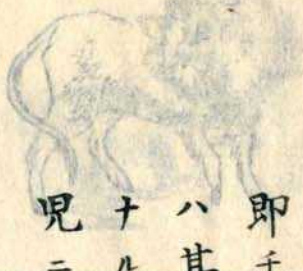 即チ
ハ甚
ナル
児ニ